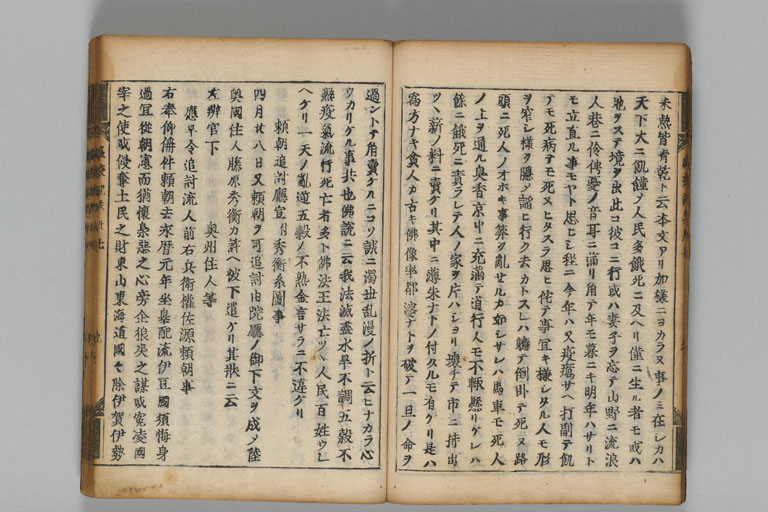 未熟皆青乾ト云本文アリ加様ニヨカラヌ事ノミ在シカハ
天下大ニ飢饉シ人民多餓死ニ及ヘリ僅ニ生ル者モ或ハ
地ヲステ境ヲ出此コ彼コニ行或ハ妻子ヲ忘テ山野ニ流浪
人巷ニ伶俜憂ノ音耳ニ満リ角テ年モ暮ニキ明年ハサリト
モ立直ル事モヤト思ヒシ程ニ今年ハ又疫癘サヘ打副テ飢
テモ死病テモ死ヌヒタスラ思ヒ侘テ事宜キ様シタル人モ形
ヲ窄シ様ヲ隠シ諂ヒ行ク去カトスレハ軈テ倒臥テ死ヌ路
頭ニ死人ノオホキ事算ヲ乱セルカ如シサレハ馬車モ死人
ノ上ヲ通ル臭香京中ニ充満テ道行人モ不輙懸リケレハ
餘ニ餓死ニ責ラレテ人ノ家ヲ片ハシヨリ壊チテ市ニ持出
ツヽ薪ノ料ニ賣ケリ其中ニ薄朱ナトノ付タルモ有ケリ是ハ
為方ナキ貪人カ古キ佛像率都婆ナトヲ破テ一旦ノ命ヲ
過ントテ角賣ケルニコソ誠ニ濁世乱漫ノ折ト云ヒナカラ心
ウカリケル事共也佛説ニ云我法滅盡水旱不調五穀不
熟疫氣流行死亡者多ト佛法王法亡ツヽ人民百姓ウレ
ヘケリ一天ノ乱逆五穀ノ不熟金言サラニ不違ケリ
頼朝追討廳宣附秀衡系圖事
四月廿八日又頼朝ヲ可追討由院廳ノ御下文ヲ成ノ陸
奥國住人藤原秀衡カ許ヘ被下遣ケリ其状ニ云
左辨官下　奥州住人等
應早令追討流人前右兵衛權佐源頼朝事
右奉仰偁件頼朝去永暦元年坐辜配流伊豆國須悔身
過宜從朝憲而猶懐梟惡之心旁企狼戻之謀或寃凌國
宰之使或侵奪土民之財東山東海道國々除伊賀伊勢